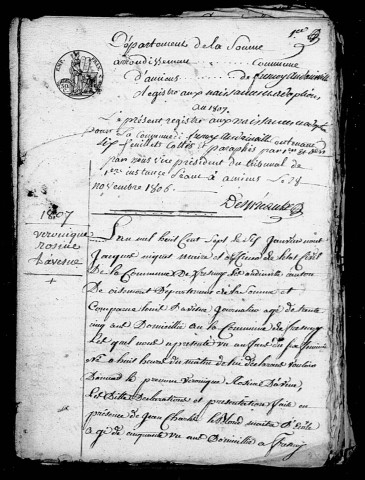 1er
Département de la Somme
arrondissement commune
d'amiens de fresnoy andainville
Registre aux naissances et adoption
an 1807.
Le présent registre aux naissances et adop
pour la commune de fresnoy andainville contenant
six feuillets cottés et paraphés par
par nous vice président du tribunal de
1ere instance séant à amiens le 28
novembre 1806.
1807
veronique
rosine
davesne
+
L'an mil huit cent sept le six janvier nous
Jacque maire et officier de l'état civil
De la Commune De Fresnoy andinville canton
De oisemont Département de la Somme est
Comparu Louis Davesne journalier agé de trente
cinq ans Domicilié en la Commune de fresnoy
Lequel nous a présenté un enfant du sexe féminin
Né a huit heures du matin de lui déclarant
Donner le prenom veronique Rosine Davesne
Les dittes declarations et presentation fait en
présence de jean Charles Leblond maitre D'école
agé de cinquante un ans Domicilié a fresnoy